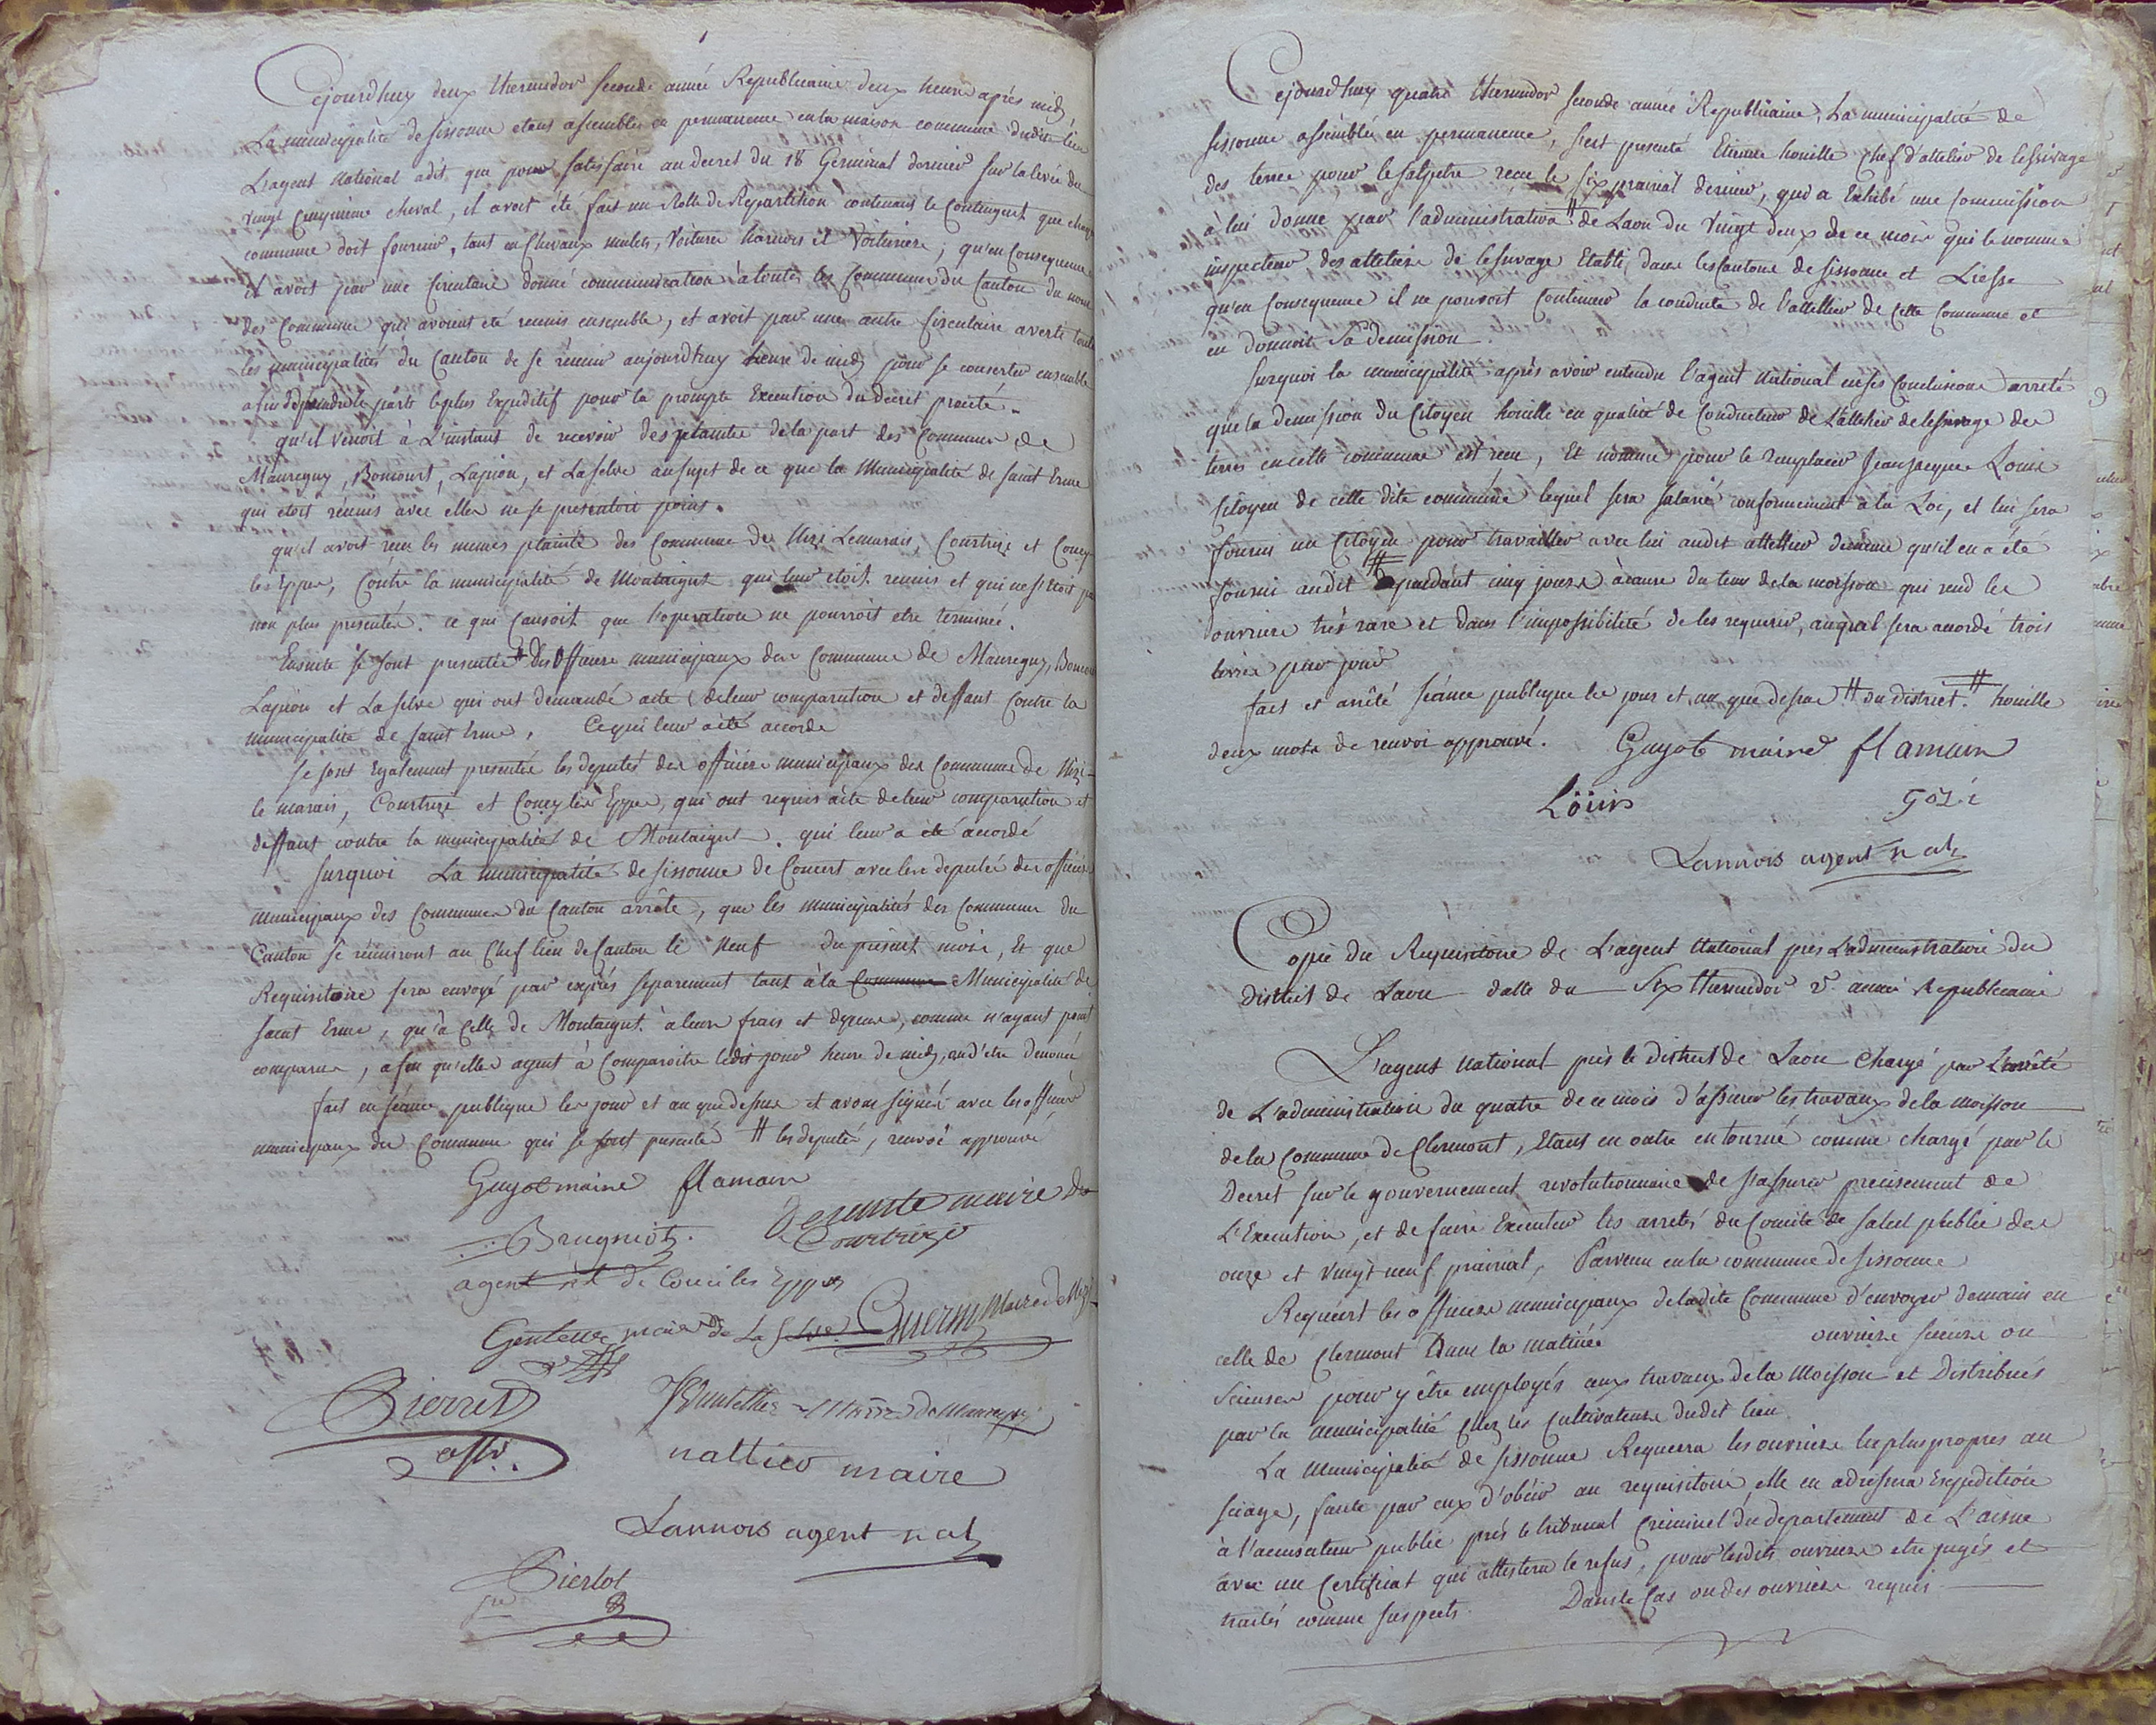 Cejourdhuy deux thermidor seconde année Republicaine deux heure après midy
La municipalité de sissonne etant assemblée en permanence en la maison commune dudit lieu
L'agent national a dit que pour satisfaire au decret du 18 Germinal dernier sur la levée du
vingt cinquieme cheval, il avoit été fait un Rolle de Repartition contenant le Contingent que chaque
commune doit fournir, tant en Chevaux mulets, Voiture harnois et Voiturier ; qu'en Consequence
il avoit par une Circulaire donné communication à toutes les Communes du Canton du nom
des Commune qui avoient été reunis ensemble, et avoit par une autre Circulaire averti toute
les municipalités du Canton de se reunir aujourdhuy heure de midy pour se conserter ensemble
afin de prendre le parti le plus Expeditif pour la prompte Execution du Decret precité.
qu'il venoit à L'instant de recevoir des plainte de la part des Commune de
Mauregny, Boncourt, Lapion, et Laselve au sujet de ce que la Municipalité de saint Erme
qui étoit réunis avec elles ne se presentoit point.
qu'il avoit recu les memes plainte des Commune de Nizi Lemarais, Courtrize et Coucy
les Eppes, Contre la municipalité de Montaigut qui leur etoit reunis et qui ne s'etoit pas
non plus presentée. ce qui Causoit que l'operation ne pourroit etre terminée.
Ensuite se sont presentée # des Officiers municipaux des Commune de Mauregny, Boncourt
Lapion et La selve qui ont demandé acte de leur comparution et deffaut Contre la
municipalité de saint Erme, Ce qui leur a été accordé
Se sont Egalement presentée les deputés des officiers municipaux des Commune de Nizi
le marais, Courtrize et Coucy les Eppes, qui ont requis acte de leur comparution et
deffaut contre la municipalité de Montaigut. qui leur a été accordé
Surquoi La municipalité de sissonne de Concert avec les deputés des officiers
municipaux des Communes du Canton arrête, que les municipalités des Commune du
Canton se réuniront au Chef lieu de Canton le neuf du présent mois, Et que
Requisitoire sera envoyé par exprés separement tant à la Commune Municipalité de
saint Erme, qu'à Celle de Montaigut à leur frais et depens, comme n'ayant point
comparue, afin qu'elles ayent à Comparoitre ledit jour heure de midy, ou d'etre denoncé
fait en séance publique les jour et an que dessus et avons signé avec les officiers
municipaux des Commune qui se sont presenté # les deputés, renvoi approuvé
Guyot maire flamain
Brugniot. Demante maire de
Courtrize
agent nl de Couci les Eppes
Genteur maire de La Selve Guerin Maire de Nizi
Pierret
assr.
Maire de Mauregny
nattier maire
Lannois agent nat
Pierlot
Cejourdhuy quatre thermidor seconde année Republicaine, La municipalité de
sissonne assemblée en permanence, s'est presenté Etienne houille Chef d'attelier de Lessivage
des terre pour le salpetre recu le six prairial dernier, qui a Exhibé une Commission
à lui donne par l'administration # de Laon du Vingt deux de ce mois qui le nomme
inspecteur des atteliers de lessivage Etabli dans les Cantons de sissonne et Liesse
qu'en Consequence il ne pouvoit Continuer la conduite de l'attellier de Cette Commune et
en donnoit Sa demission.
Surquoi la municipalité après avoir entendu l'agent national en ses Conclusions arreté
que la demission du Citoyen houille en qualité de Conducteur de L'attelier de lessivage des
terres en cette commune est recu, Et nomme pour le remplacer Jean Jacque Louis
Citoyen de cette dite commune lequel sera salarié conformement à la Loi, et lui sera
fourni un Citoyen pour travailler avec lui audit attellier de meme qu'il en a été
fourni audit # pendant cinq jours à cause du tems de la moisson qui rend les
ouvriers très rare et dans l'impossibilité de les requerir, auquel sera accordé trois
livres par jour
fait et arrêté séance publique les jour et an que dessus # du district. # houille
deux mots de renvoi approuvé. Guyot maire flamain
Löuis gozé
Lannois agent nat
Copie du Requisitoire de L'agent national près L'administration du
district de Laon datté du Six thermidor 2e. année Republicaine
L'agent national près le district de Laon Chargé par L'arrêté
de L'administration du quatre de ce mois d'assurer les travaux de la moisson
de la Commune de Clermont, Etant en outre en tourné comme chargé par le
Decret sur le gouvernement revolutionnaire de s'assurer precisement de
L'Execution, et de faire Executer les arretés du Comité de salut public des
onze et vingt neuf prairial, Parvenu en la commune de sissonne
Requiert les officiers municipaux de ladite Commune d'envoyer demain en
celle de Clermont Dans la matinée ouvriers scieurs ou
scieuses pour y être employés aux travaux de la Moisson et Distribués
par la municipalité chez les Cultivateurs dudit lieu.
La Municipalité de sissonne Requerra les ouvriers les plus propres au
sciage, faute par eux d'obéir au requisitoire, elle en adressera Expedition
à l'accusateur public près le tribunal Criminel du departement de L'aisne
avec un Certificat qui attestera le refus, pour lesdits ouvriers etre jugés et
traités comme suspects. Dans le Cas ou des ouvriers requis